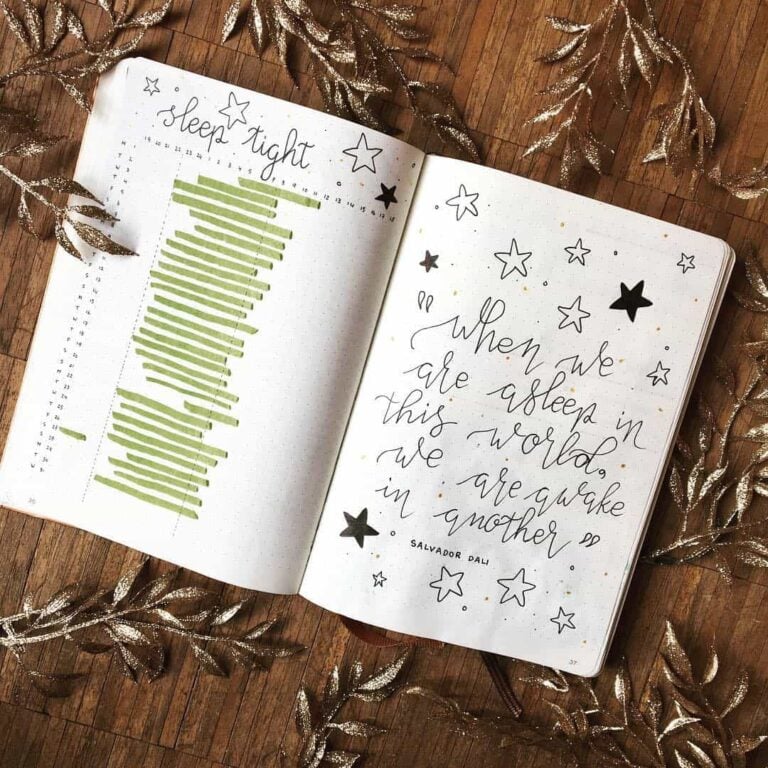 sleep tight
19 20 21 22 23 24 1 2 3 4 5 6 7 8 9 10 11 12 13 14 15 16 17 18
"when we
are asleep in
this world,
we are awake
in another"
SALVADOR DALI
37